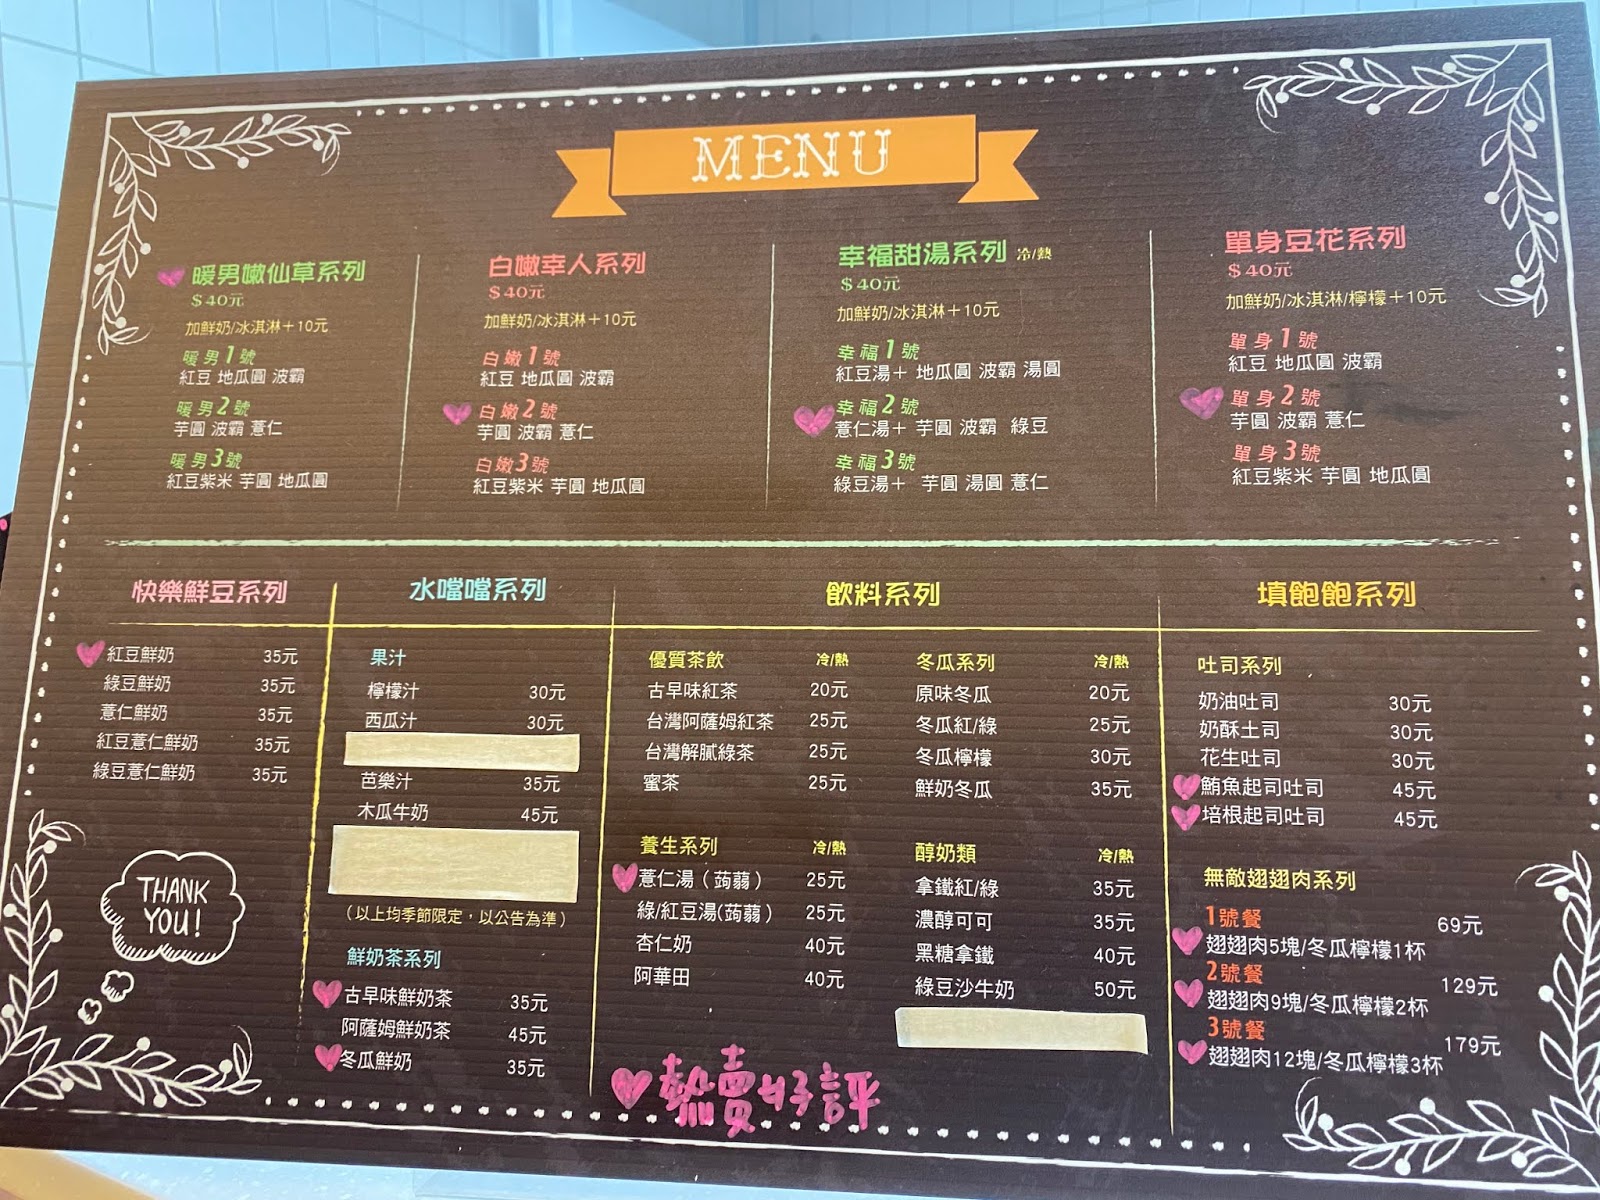 MENU
暖男嫩仙草系列
$40元
加鮮奶/冰淇淋+10元
暖男1號
紅豆 地瓜圓 波霸
暖男2號
芋圓 波霸 薏仁
暖男3號
紅豆紫米 芋圓 地瓜圓
白嫩幸人系列
$40元
加鮮奶/冰淇淋+10元
白嫩1號
紅豆 地瓜圓 波霸
白嫩2號
芋圓 波霸 薏仁
白嫩3號
紅豆紫米 芋圓 地瓜圓
幸福甜湯系列 冷/熱
$40元
加鮮奶/冰淇淋+10元
幸福1號
紅豆湯+ 地瓜圓 波霸 湯圓
幸福2號
薏仁湯+ 芋圓 波霸 綠豆
幸福3號
綠豆湯+ 芋圓 湯圓 薏仁
單身豆花系列
$40元
加鮮奶/冰淇淋/檸檬+10元
單身1號
紅豆 地瓜圓 波霸
單身2號
芋圓 波霸 薏仁
單身3號
紅豆紫米 芋圓 地瓜圓
快樂鮮豆系列
紅豆鮮奶 35元
綠豆鮮奶 35元
薏仁鮮奶 35元
紅豆薏仁鮮奶 35元
綠豆薏仁鮮奶 35元
THANK
YOU!
水噹噹系列
果汁
檸檬汁 30元
西瓜汁 30元
芭樂汁 35元
木瓜牛奶 45元
(以上均季節限定,以公告為準)
鮮奶茶系列
古早味鮮奶茶 35元
阿薩姆鮮奶茶 45元
冬瓜鮮奶 35元
飲料系列
優質茶飲 冷/熱
古早味紅茶 20元
台灣阿薩姆紅茶 25元
台灣解膩綠茶 25元
蜜茶 25元
養生系列 冷/熱
薏仁湯(蒟蒻) 25元
綠/紅豆湯(蒟蒻) 25元
杏仁奶 40元
阿華田 40元
冬瓜系列 冷/熱
原味冬瓜 20元
冬瓜紅/綠 25元
冬瓜檸檬 30元
鮮奶冬瓜 35元
醇奶類 冷/熱
拿鐵紅/綠 35元
濃醇可可 35元
黑糖拿鐵 40元
綠豆沙牛奶 50元
熱賣好評
填飽飽系列
吐司系列
奶油吐司 30元
奶酥土司 30元
花生吐司 30元
鮪魚起司吐司 45元
培根起司吐司 45元
無敵翅翅肉系列
1號餐 69元
翅翅肉5塊/冬瓜檸檬1杯
2號餐 129元
翅翅肉9塊/冬瓜檸檬2杯
3號餐 179元
翅翅肉12塊/冬瓜檸檬3杯